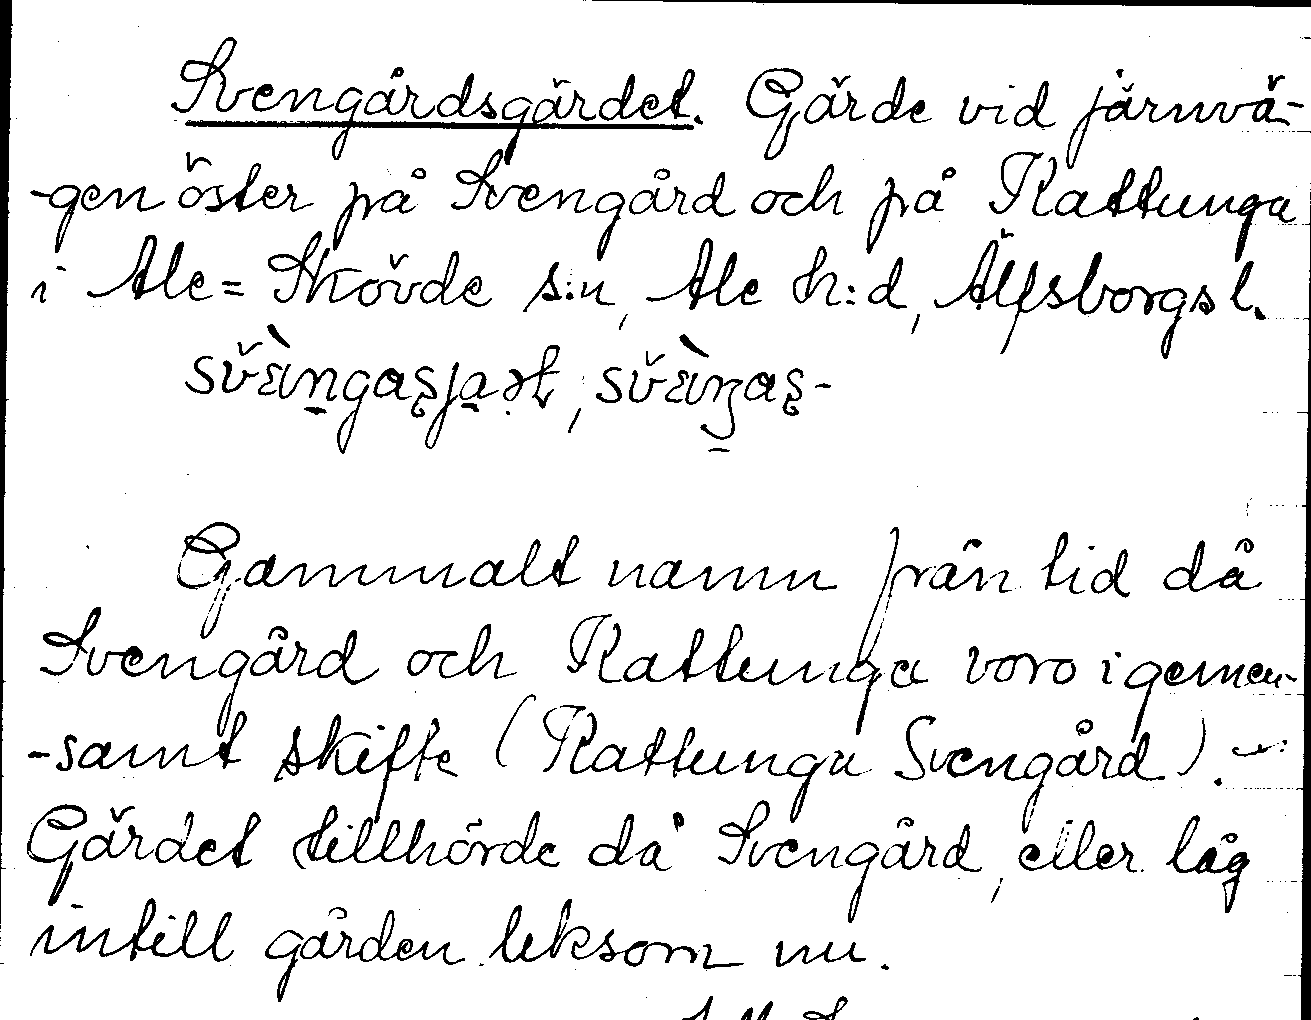 Svengårdsgärdet. Gärde vid järnvä-
-gen öster på Svengård och på Kattunga
i Ale=Skövde s:n, Ale h:d, Älfsborgs l.
Gammalt namn från tid då
Svengård och Kattunga voro i gemen-
-samt skifte (Kattunga Svengård). -
Gärdet tillhörde då Svengård, eller låg
intill gården liksom nu.